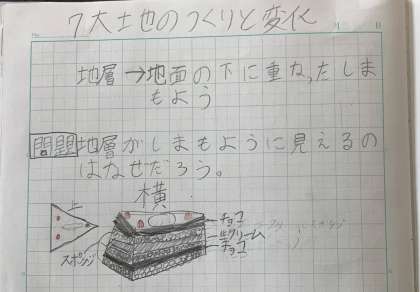 7大土也のつくりと変化
地層→地面の下に重なったしま
もよう
問題 地層がしまもように見えるの
はなぜだろう。
横
上
チョコ
生クリーム
チョコ
スポンジ